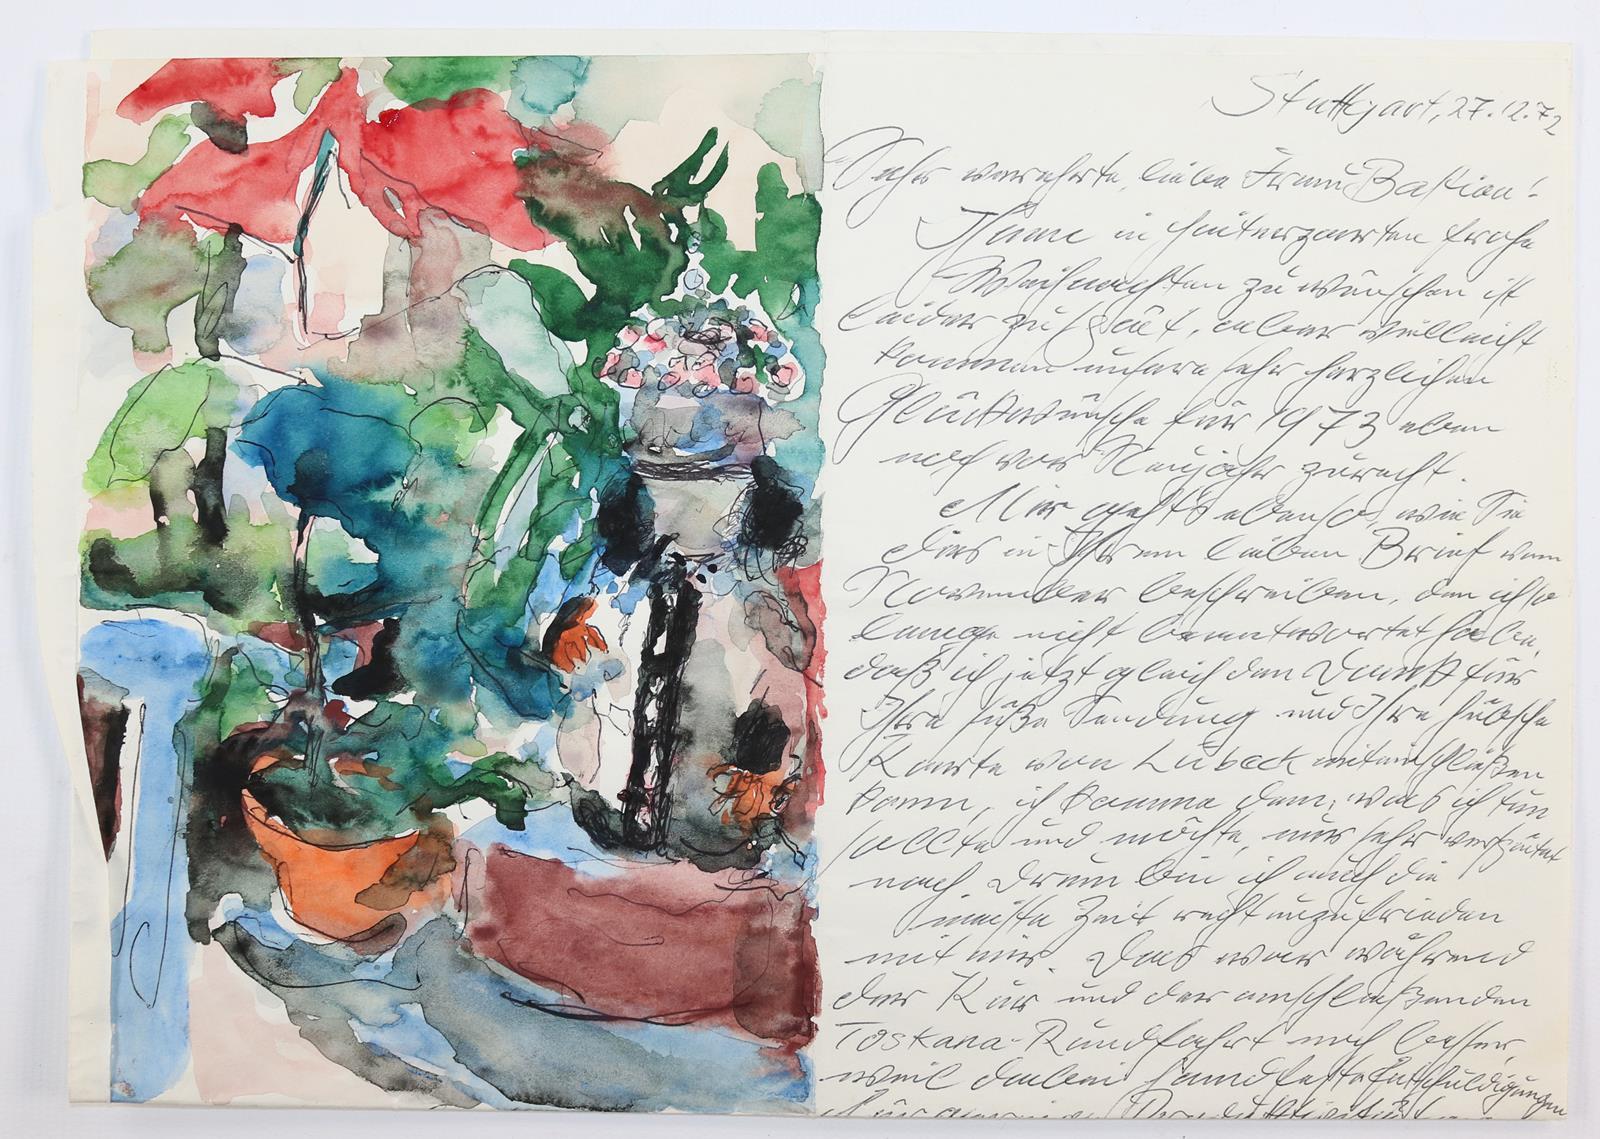 Stuttgart, 27.12.72
Sehr verehrte, liebe Frau Bastian!
Ihnen in Hinterzarten frohe
Weihnachten zu wünschen ist
leider zu spät, aber vielleicht
kommen unsere sehr herzlichen
Glückwünsche für 1973 eben
noch vor Neujahr zurecht.
Mir geht's ebenso, wie Sie
dies in Ihrem lieben Brief vom
November beschreiben, den ich so
lange nicht beantwortet habe,
daß ich jetzt gleich den Dank für
Ihre süße Sendung und Ihre hübsche
Karte von Lübeck miteinschließen
kann, ich komme dem, was ich tun
sollte und möchte, nur sehr verspätet
nach. Drum bin ich auch die
meiste Zeit recht unzufrieden
mit mir. Das war während
der Kur und der anschließenden
Toskana-Rundfahrt noch besser,
weil dabei handfeste Entschuldigungen